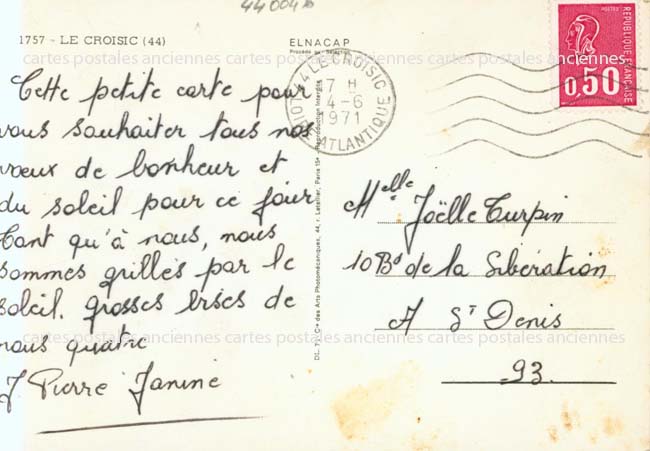 44004
1757 - LE CROISIC (44)
ELNACAP
Procédé
cartes postales anciennes cartes postales anciennes cartes postales anciennes
Cette petite carte pour
vous souhaiter tous nos
vœux de bonheur et
du soleil pour ce jour
tant qu'à nous, nous
sommes grillés par le
soleil. grosses bises de
nous quatre
J Pierre Janine
44 LE CROISIC
17 H
4-6
1971
LOIRE ATLANTIQUE
REPUBLIQUE FRANÇAISE
0,50
DL. 71 Cie des Arts Photomécaniques, 44, r. Letellier, Paris 15e - Reproduction interdite
Melle Joëlle Turpin
10 Bd de la Libération
A St Denis
93.
cartes postales anciennes cartes postales anciennes cartes postales anciennes